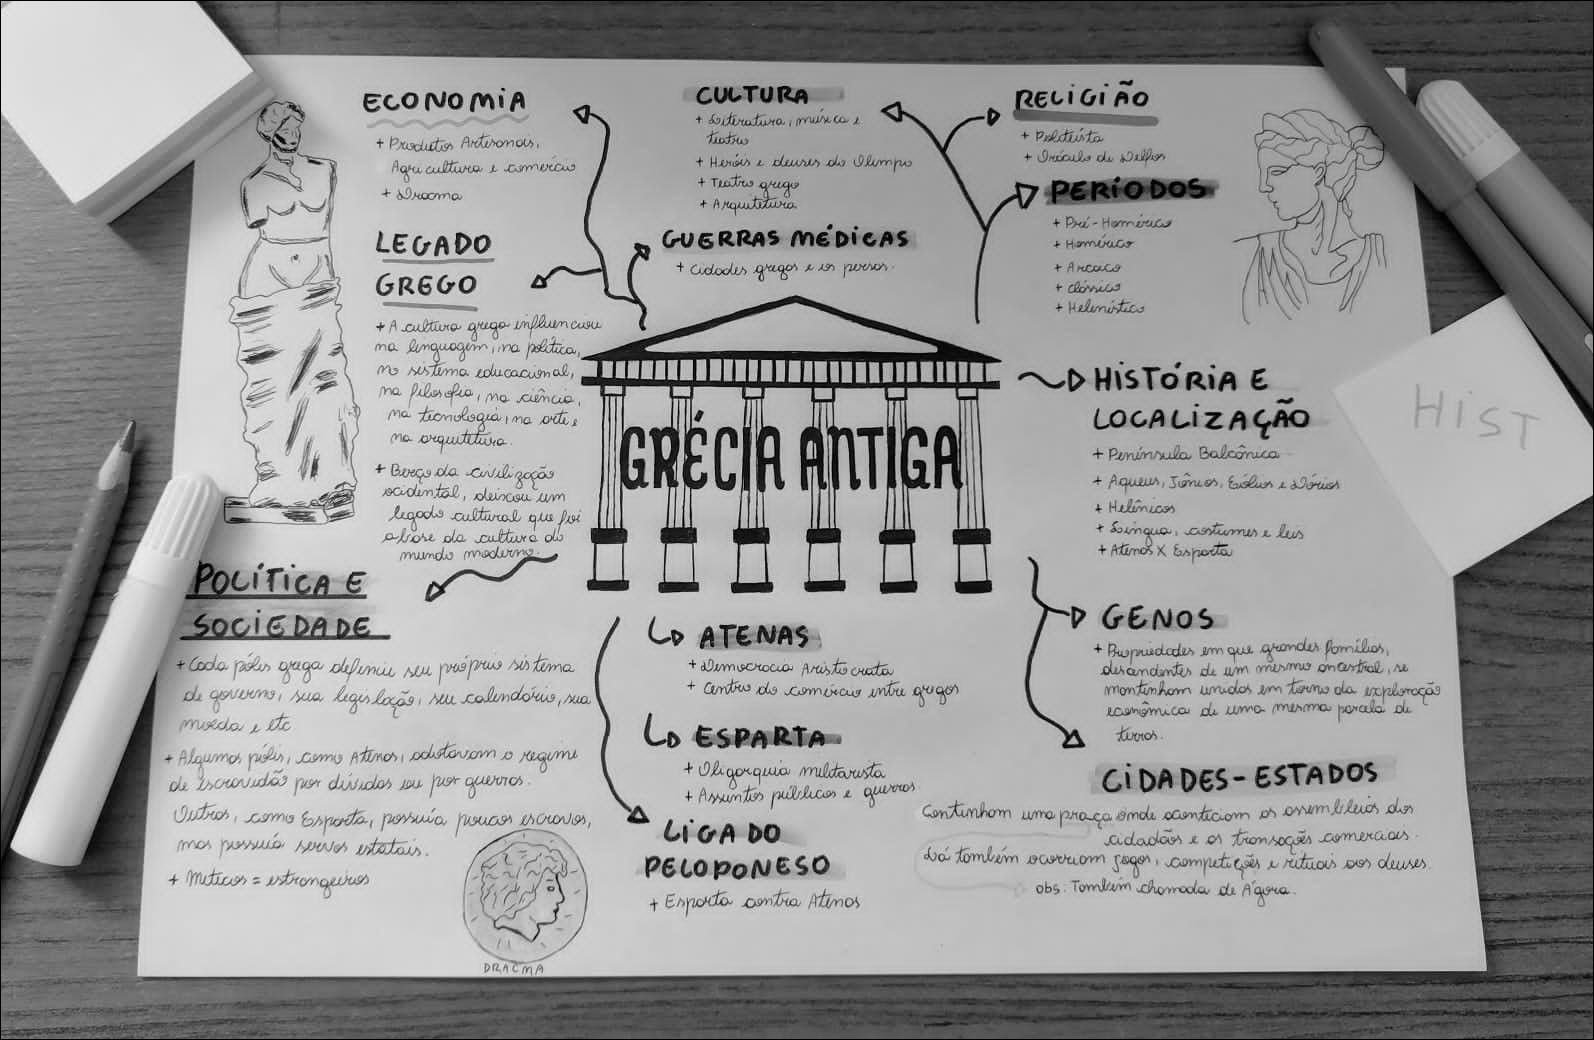 ECONOMIA
+ Produtos Artesanais,
Agricultura e comércio
+ Dracma
LEGADO
GREGO
+ A cultura grega influenciou
na linguagem, na política,
no sistema educacional,
na filosofia, na ciência,
na tecnologia, na arte e
na arquitetura.
+ Berço da civilização
ocidental, deixou um
legado cultural que foi
a base da cultura do
mundo moderno.
CULTURA
+ Literatura, música e
teatro
+ Heróis e deuses do Olimpo
+ Teatro grego
+ Arquitetura
GUERRAS MÉDICAS
+ Cidades gregas e os persas.
RELIGIÃO
+ Politeísta
+ Oráculo de Delfos
PERÍODOS
+ Pré-Homérico
+ Homérico
+ Arcaico
+ Clássico
+ Helenístico
GRÉCIA ANTIGA
HISTÓRIA E
LOCALIZAÇÃO
+ Península Balcânica
+ Aqueus, Jônios, Eólios e Dórios
+ Helênicos
+ Língua, costumes e leis
+ Atenas X Esparta
HIST
POLÍTICA E
SOCIEDADE
+ Cada pólis grega definiu seu próprio sistema
de governo, sua legislação, seu calendário, sua
moeda e etc
+ Algumas pólis, como Atenas, adotavam o regime
de escravidão por dívidas ou por guerras.
Outras, como Esparta, possuía poucos escravos,
mas possuía servos estatais.
+ Metecos = estrangeiros
DRACMA
ATENAS
+ Democracia Aristocrata
+ Centro do comércio entre gregos
ESPARTA
+ Oligarquia militarista
+ Assuntos públicos e guerras.
LIGA DO
PELOPONESO
+ Esparta contra Atenas
GENOS
+ Propriedades em que grandes famílias,
descendentes de um mesmo ancestral, se
mantinham unidos em torno da exploração
econômica de uma mesma parcela de
terras.
CIDADES-ESTADOS
Continham uma praça onde aconticiam as assembleias dos
cidadãos e as transações comerciais.
Lá também ocorriam jogos, competições e rituais aos deuses.
obs: Também chamada de Ágora.